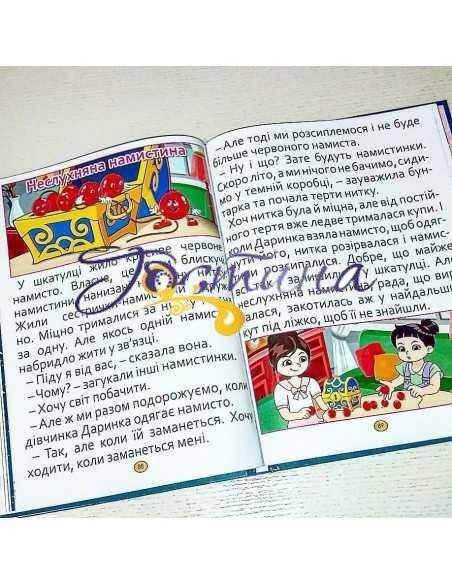 Неслухняна намистина
У шкатулці жило
червоне
намисто. Власне, це
блиску
намистини, нанизані
Жили сестрички-намистини
но. Міцно трималися за нитку
за одну. Але якось одній намис
набридло жити у зв'язці.
– Піду я від вас, – сказала вона.
– Чому? – загукали інші намистинки.
– Хочу світ побачити.
– Але ж ми разом подорожуємо, коли
дівчинка Даринка одягає намисто.
– Так, але коли їй заманеться. Хочу
ходити, коли заманеться мені.
88
– Але тоді ми розсиплемося і не буде
більше червоного намиста.
– Ну і що? Зате будуть намистинки.
Скоро літо, а ми нічого не бачимо, сиди-
мо у темній коробці, – зауважила бун-
тарка та почала терти нитку.
Хоч нитка була й міцна, але від постій-
ного тертя вже ледве трималася купи. І
коли Даринка взяла намисто, щоб одяг-
нути його, нитка розірвалася і намис-
тинки розсипалися. Добре, що майже
всі залишилися в шкатулці. Але
неслухняна намистина, рада, що вир
валася, закотилась аж у найдальши
кут під ліжко, щоб її не знайшли.
89
Гостина